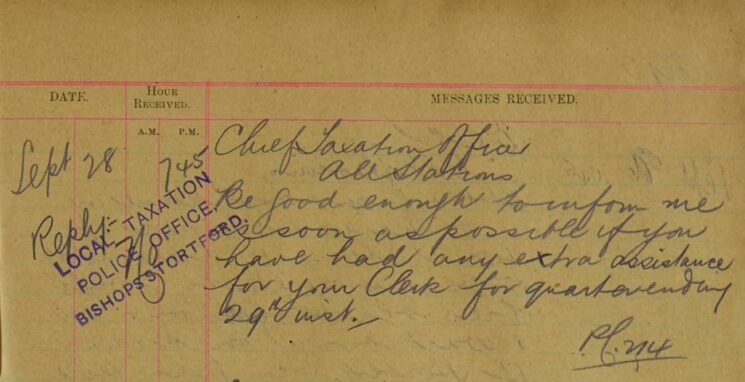 DATE.
HOUR
RECEIVED.
MESSAGES RECEIVED.
A.M. P.M.
Sept 28 745
Chief Taxation Officer
All Stations
Be good enough to inform me
as soon as possible if you
have had any extra assistance
for your Clerk for quarter ending
29th inst.
Reply:-
LOCAL TAXATION
POLICE OFFICE,
BISHOPS STORTFORD.
P.C. 214